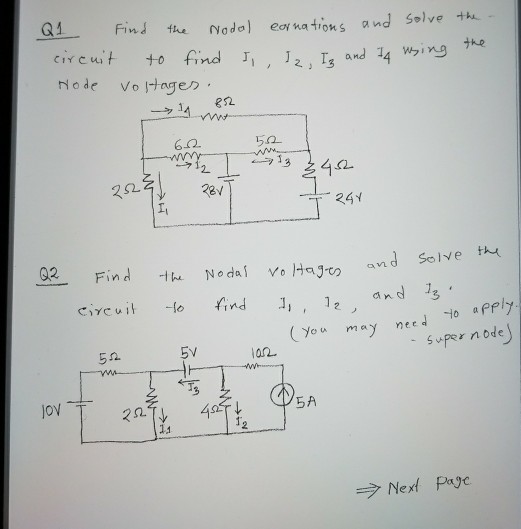 Q1 Find the Nodal eqrnations and solve the -
circuit to find I1, I2, I3 and I4 using the
Node voltages.
→ I4 8Ω
6Ω 5Ω
→ I2 → I3 4Ω
2Ω ↓ 28V 24V
I1
Q2 Find the Nodal voltages and solve the
circuit to find I1, I2, and I3.
(You may need to apply
- supernode)
5Ω 5V 10Ω
← I3
10V 2Ω ↓ I1 4Ω ↓ I2 5A
⇒ Next page